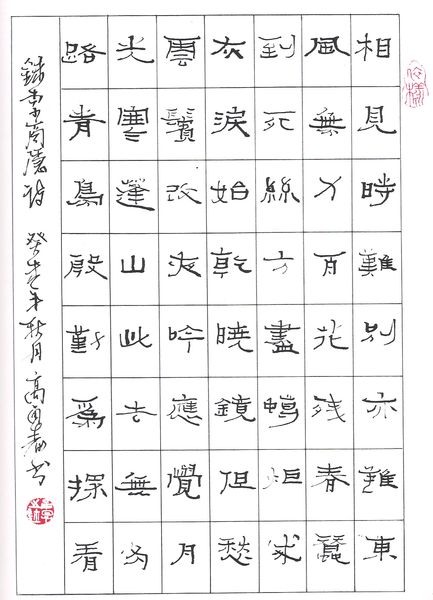 相見時難別亦難東
風無力百花残春蠶
到死絲方盡蠟炬成
灰淚始乾曉鏡但愁
雲鬢改夜吟應覺月
光寒蓬山此去無多
路青鳥殷勤爲探看
錄李商隱詩 癸未年秋月 高春书